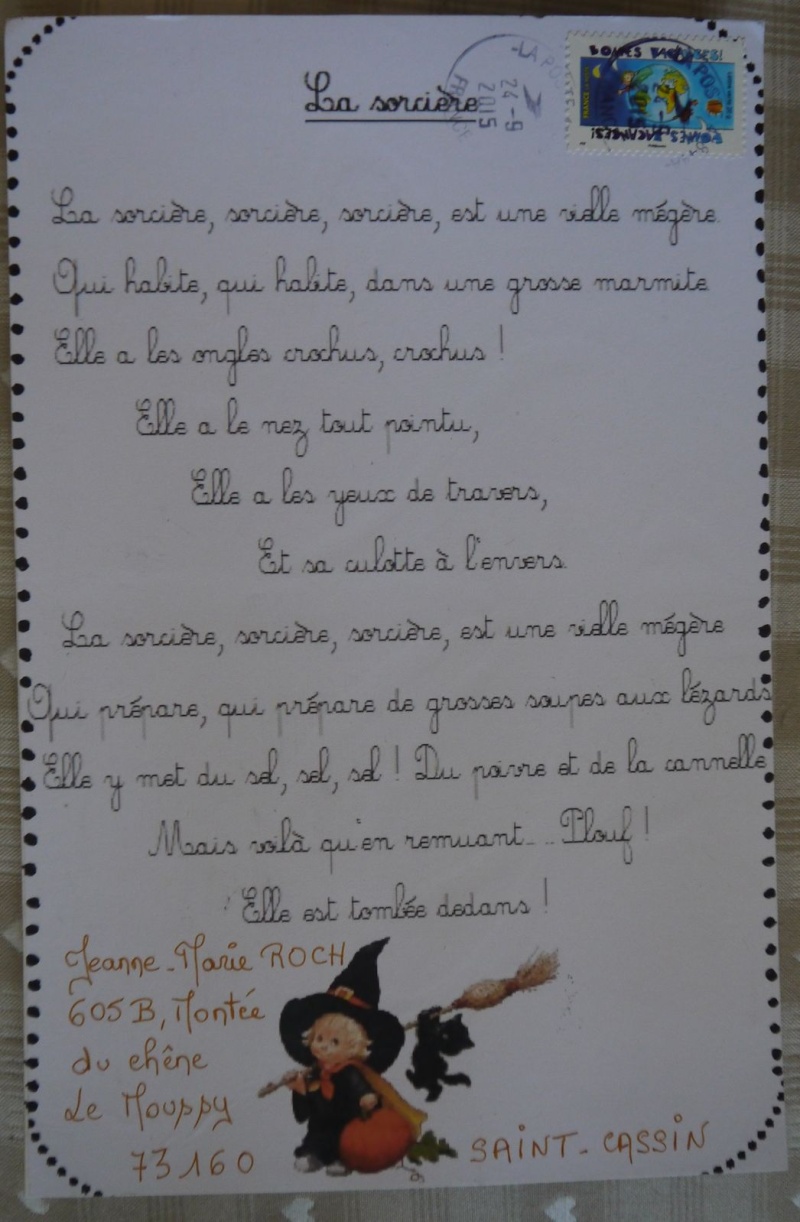 La sorcière
LA POSTE
24-9
2015
FRANCE
La sorcière, sorcière, sorcière, est une vielle mégère.
Qui habite, qui habite, dans une grosse marmite
Elle a les ongles crochus, crochus !
Elle a le nez tout pointu,
Elle a les yeux de travers,
Et sa culotte à l'envers.
La sorcière, sorcière, sorcière, est une vielle mégère
Qui prépare, qui prépare de grosses soupes aux lézards
Elle y met du sel, sel, sel ! Du poivre et de la cannelle
Mais voilà qu'en remuant... Plouf !
Elle est tombée dedans !
Jeanne-Marie ROCH
605B, Montée
du chêne
Le Mouppy
73160 SAINT-CASSIN